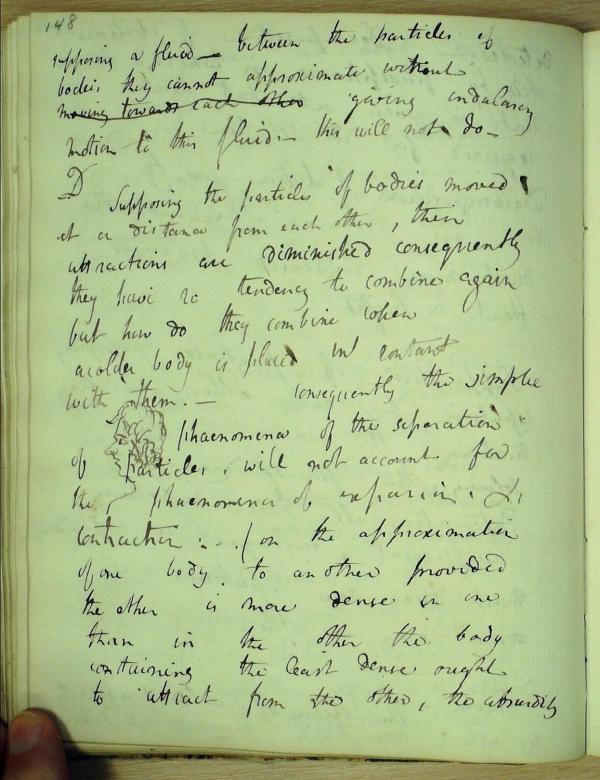 148
supposing a fluid — between the particles of
bodies they cannot approximate without
moving towards each other giving undulatory
motion to this fluid. — this will not do —
D
Supposing the particles of bodies moved
at a distance from each other, their
attractions are diminished consequently
they have no tendency to combine again
but how do they combine when
a colder body is placed in contact
with them. — consequently the simple
phaenomena of the separation
of particles, will not account for
the phaenomena of expansion. &
contraction : - . / on the approximation
of one body to another provided
the ether is more dense in one
than in the other the body
containing the least dense ought
to attract from the other, the absurdity